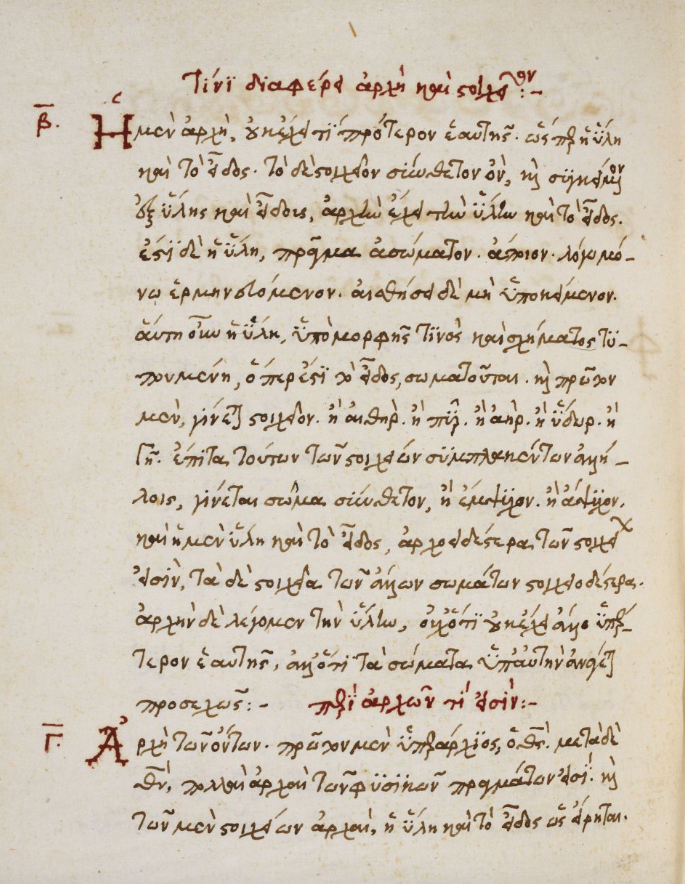 Τίνι διαφέρει ἀρχὴ καὶ στοιχεῖον:-
β. Ἡ μὲν ἀρχὴ, οὐκ ἔχει τὶ πρότερον ἑαυτῆς. ὡς περ ἡ ὕλη
καὶ τὸ εἶδος. τὸ δὲ στοιχεῖον σύνθετον ὂν, καὶ συγκείμενον
ἐξ ὕλης καὶ εἴδους, ἀρχὴν ἔχει τὴν ὕλην καὶ τὸ εἶδος.
ἐστὶ δὲ ἡ ὕλη, πρᾶγμα ἀσώματον. ἄποιον. λόγω μό-
νω ἑρμηνευόμενον. αἰσθήσει δὲ μὴ ὑποκείμενον.
αὕτη οὖν ἡ ὕλη, ὑπὸ μορφῆς τινὸς καὶ σχήματος τυ-
πουμένη, ὅπερ ἐστὶ τὸ εἶδος, σωματοῦται. καὶ πρῶτον
μὲν, γίνεται στοιχεῖον. ἢ αἰθὴρ. ἢ πῦρ. ἢ ἀὴρ. ἢ ὕδωρ. ἢ
γῆ. ἔπειτα τούτων τῶν στοιχείων συμπλακέντων ἀλλή-
λοις, γίνεται σῶμα σύνθετον, ἢ ἔμψυχον. ἢ ἄψυχον.
καὶ ἡ μὲν ὕλη καὶ τὸ εἶδος, ἀρχοειδέστερα τῶν στοιχείων
εἰσὶν, τὰ δὲ στοιχεῖα τῶν ἄλλων σωμάτων στοιχειοδέστερα.
ἀρχὴν δὲ λέγομεν τὴν ὕλην, οὐχ ὅτι οὐκ ἔχει ἄλλο ὑπέρ-
τερον ἑαυτῆς, ἀλλ' ὅτι τὰ σώματα ὑπ' αὐτὴν ἀνάγεται
προσεχῶς:- περὶ ἀρχῶν τί εἰσίν:-
Γ. Ἀρχὴ τῶν ὄντων. πρῶτον μὲν ὑπεράρχιος, ὁ θεός. μετὰ δὲ
θεὸν, πολλαὶ ἀρχαὶ τῶν φυσικῶν πραγμάτων εἰσί. καὶ
τῶν μὲν στοιχείων ἀρχαὶ, ἡ ὕλη καὶ τὸ εἶδος ὡς εἴρηται.